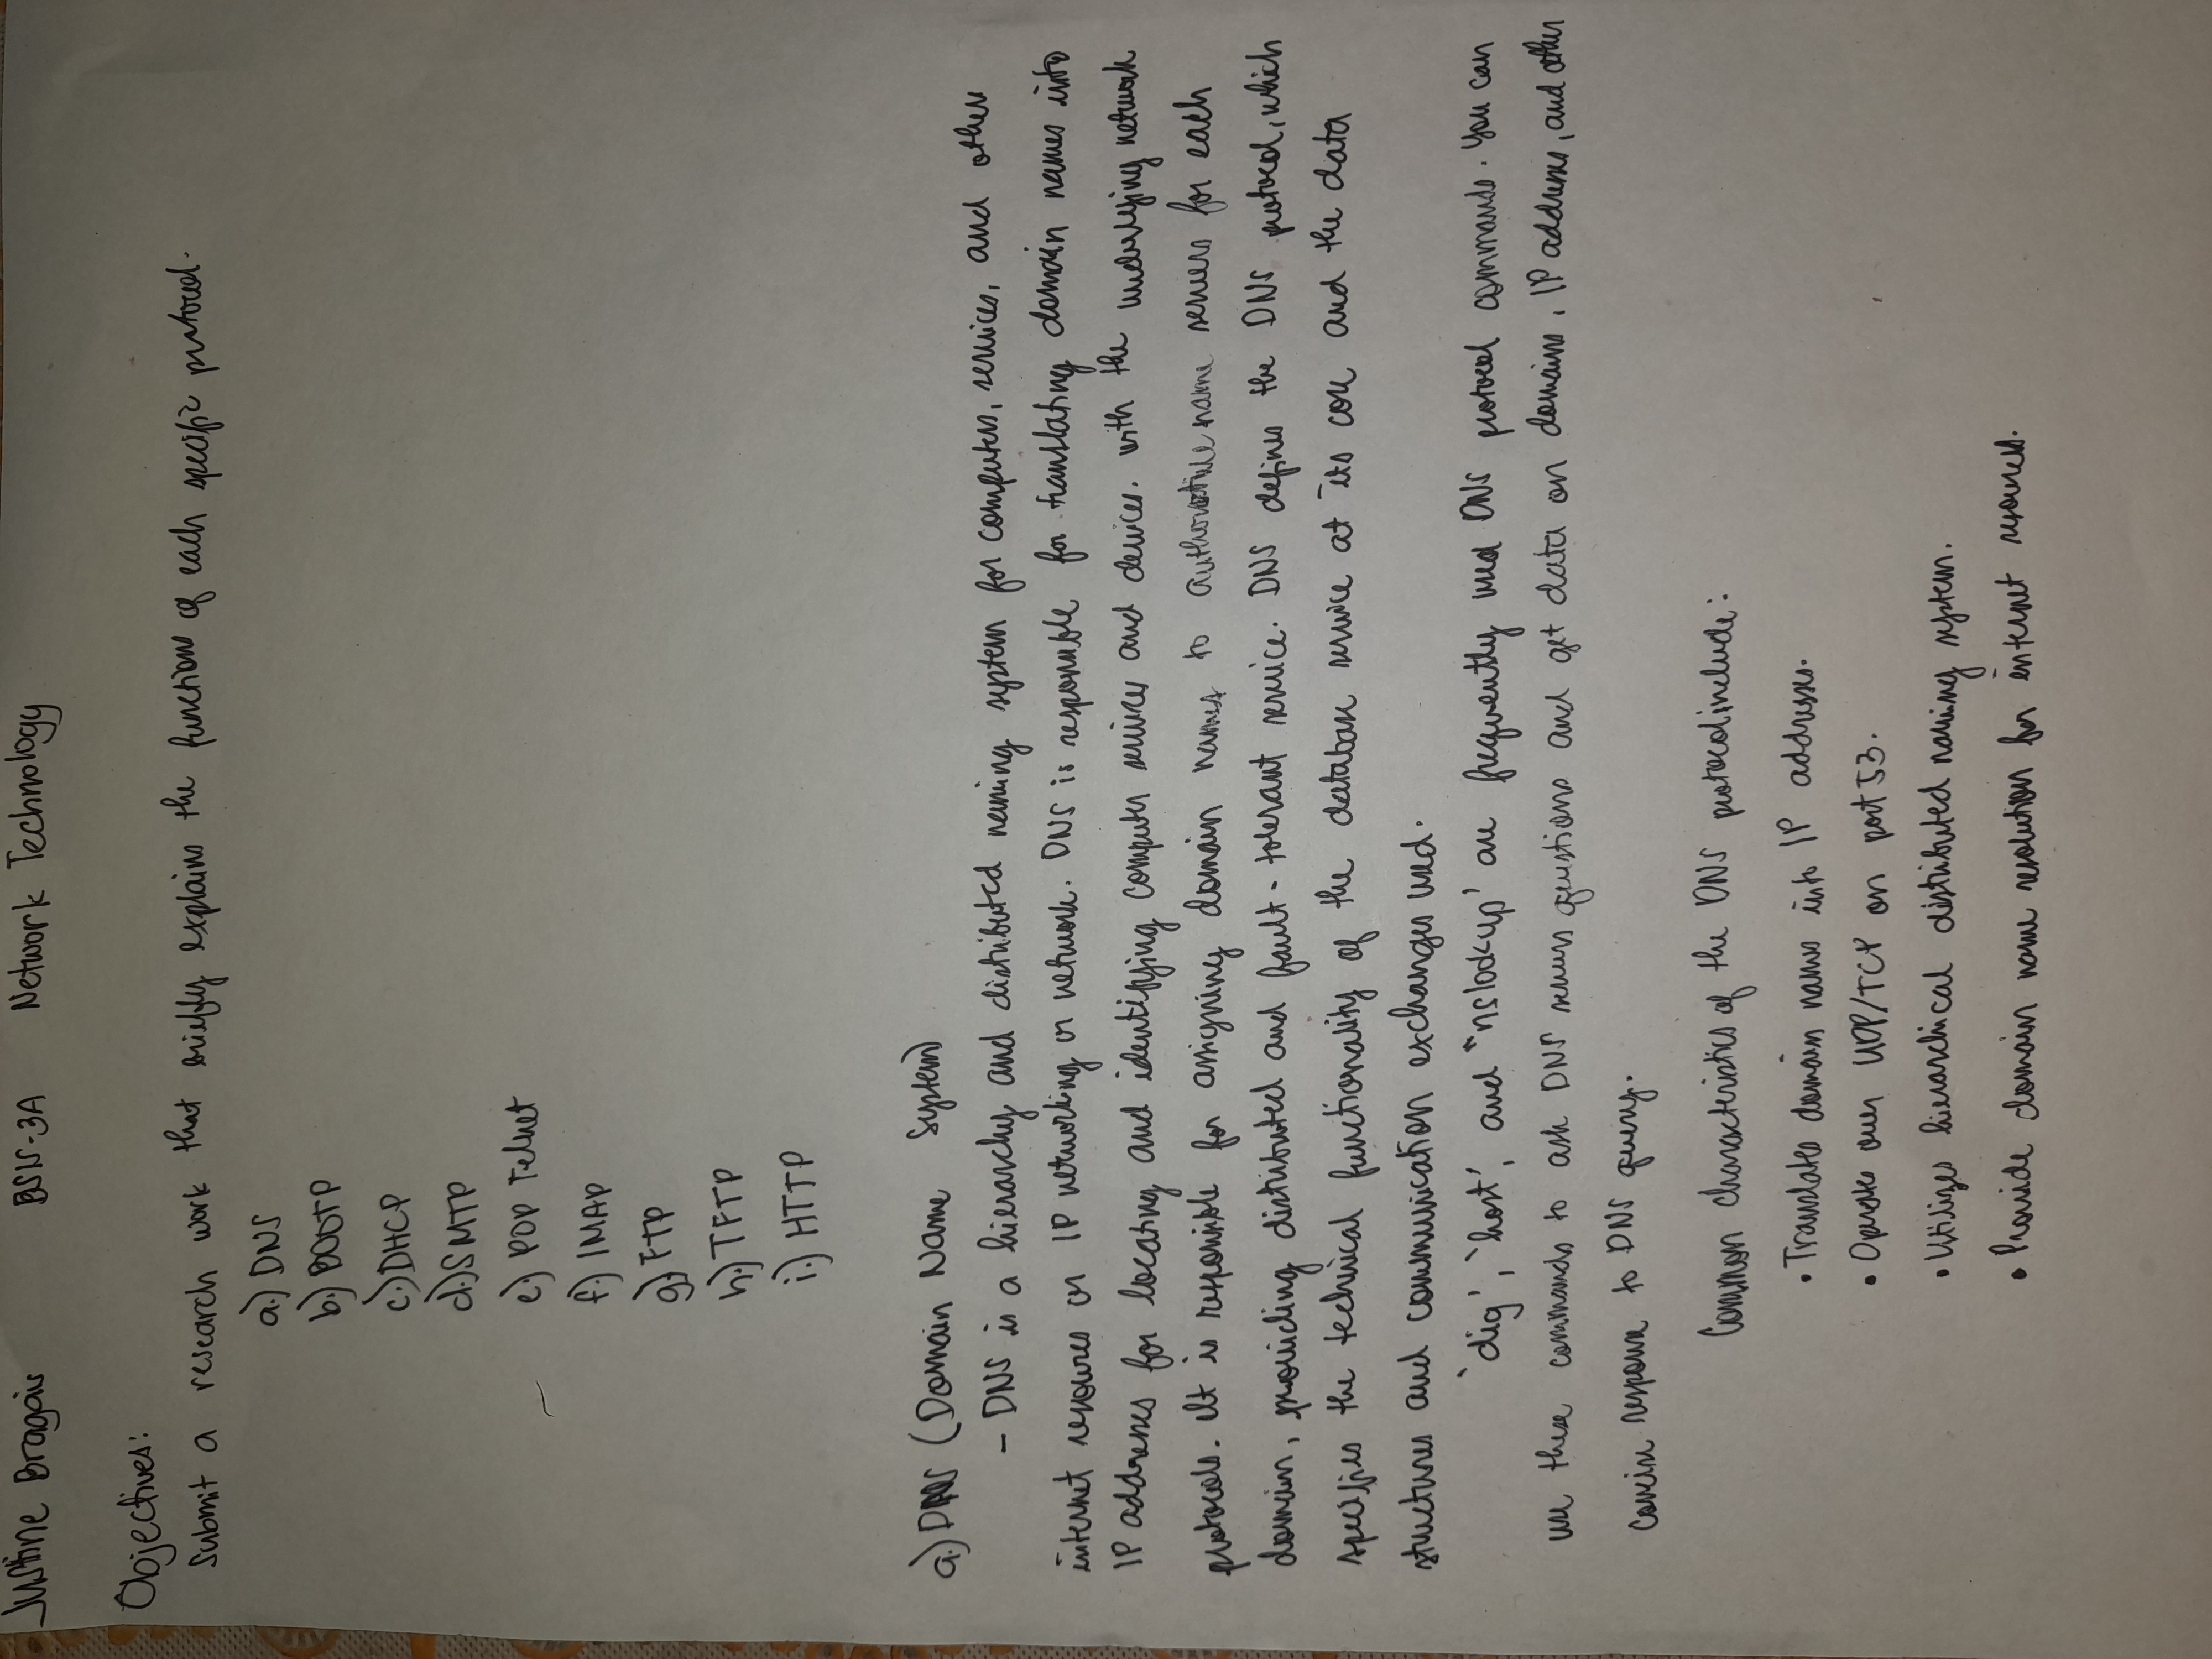 Justine Bragais BSIS-3A Network Technology
Objectives:
Submit a research work that briefly explains the functions of each specific protocol.
a.) DNS
b.) BOOTP
c.) DHCP
d.) SMTP
e.) POP Telnet
f.) IMAP
g.) FTP
h.) TFTP
i.) HTTP
a.) DNS (Domain Name System)
- DNS is a hierarchy and distributed naming system for computers, services, and other
internet resources or IP networking or network. DNS is responsible for translating domain names into
IP addresses for locating and identifying computer services and devices. with the underlying network
protocols. It is responsible for assigning domain names to authorative name servers for each
domain, providing distributed and fault-tolerant service. DNS defines the DNS protocol, which
specifies the technical functionality of the database service at its core and the data
structures and communication exchanges used.
'dig', 'host', and "nslookup' are frequently used DNS protocol commands. You can
use these commands to ask DNS servers questions and get data on domains, IP addresses, and other
concise response to DNS query.
Common characteristics of the DNS protocol include:
• Translates domain names into IP addresses.
• Operates over UDP/TCP on port 53.
• Utilizes hierarchical distributed naming system.
• Provide domain name resolution for internet resources.